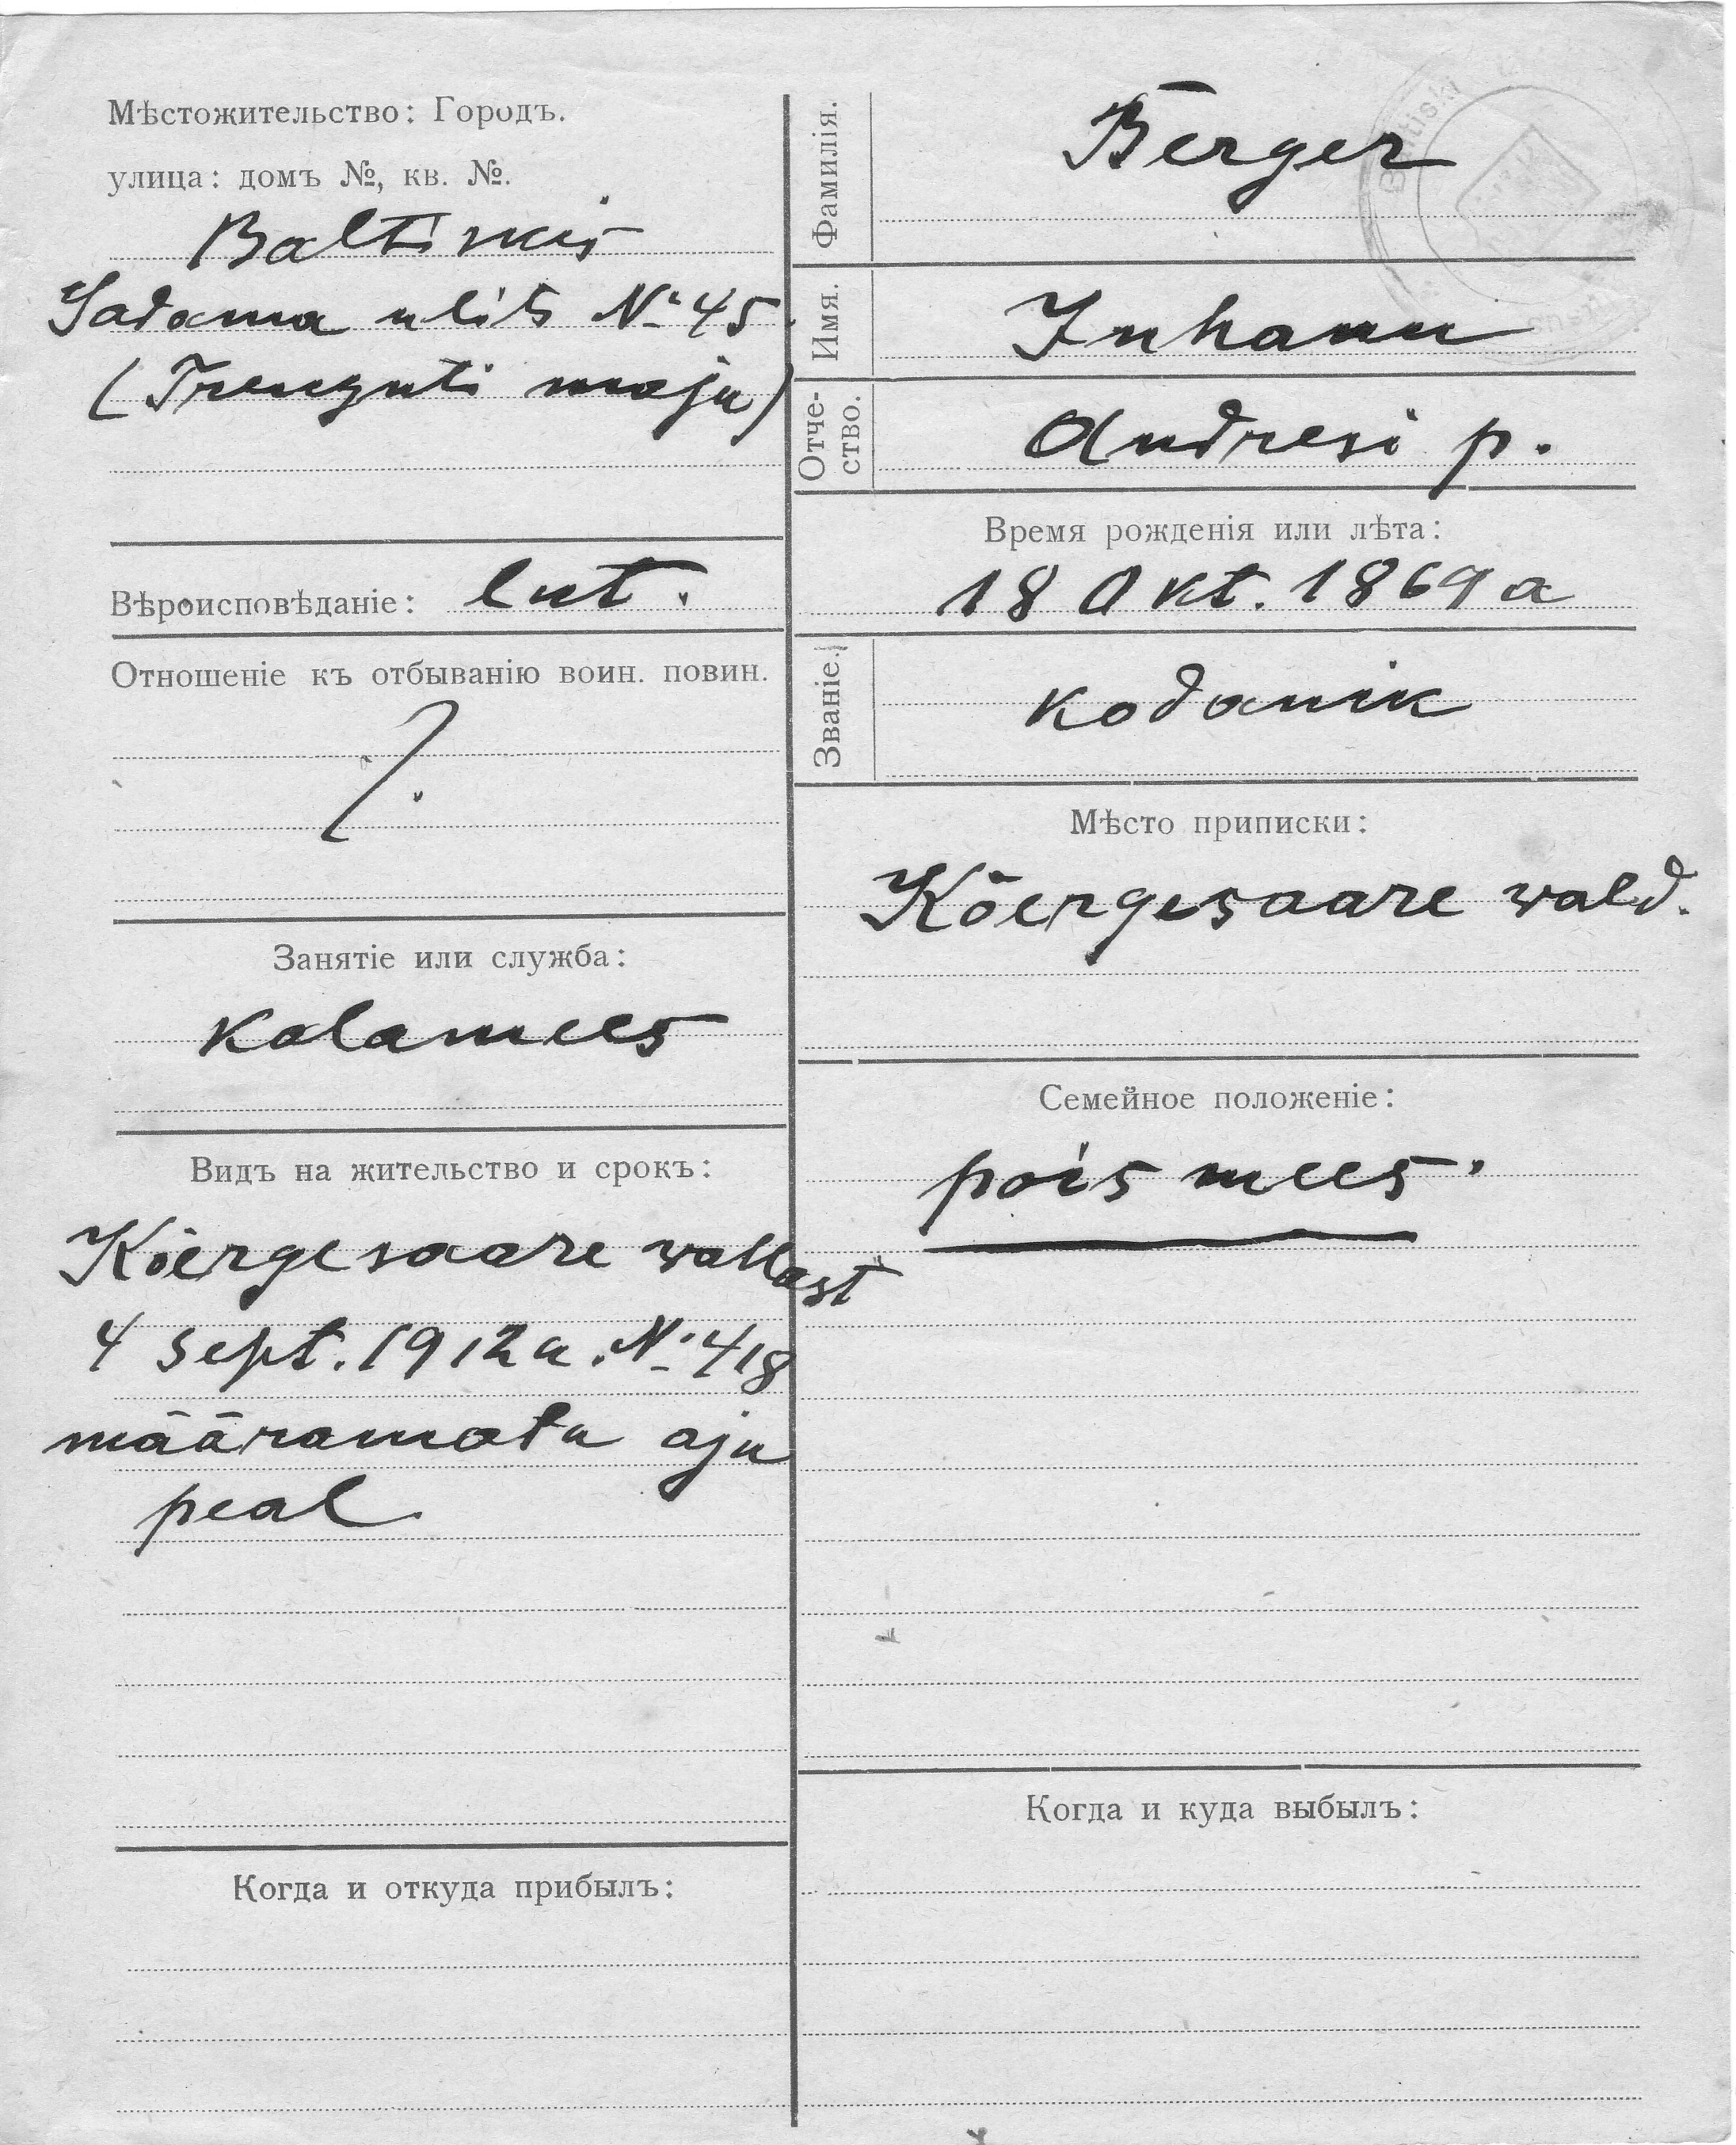 Мѣстожительство: Городъ.
улица: домъ №, кв. №.
Baltiskis
Sadama ulits № 45
( maja)
Вѣроисповѣданіе: lut.
Отношеніе къ отбыванію воин. повин.
?
Занятіе или служба:
kalamees
Видъ на жительство и срокъ:
Kõergesaare wallast
4 sept. 1912 a. № 418
määramata aja
peal
Когда и откуда прибылъ:
Фамилія. Berger
Имя. Juhann
Отче-
ство. Andresi p.
Время рожденія или лѣта:
18 Okt. 1869 a
Званіе. kodanik
Мѣсто приписки:
Kõergesaare wald.
Семейное положеніе:
pois mees.
Когда и куда выбылъ: